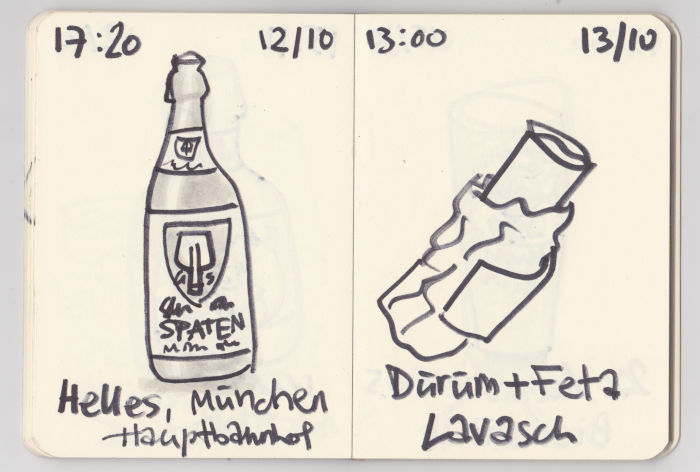 17:20 12/10
G S
SPATEN
Helles, München
Hauptbahnhof
13:00 13/10
Dürüm+Feta
Lavasch